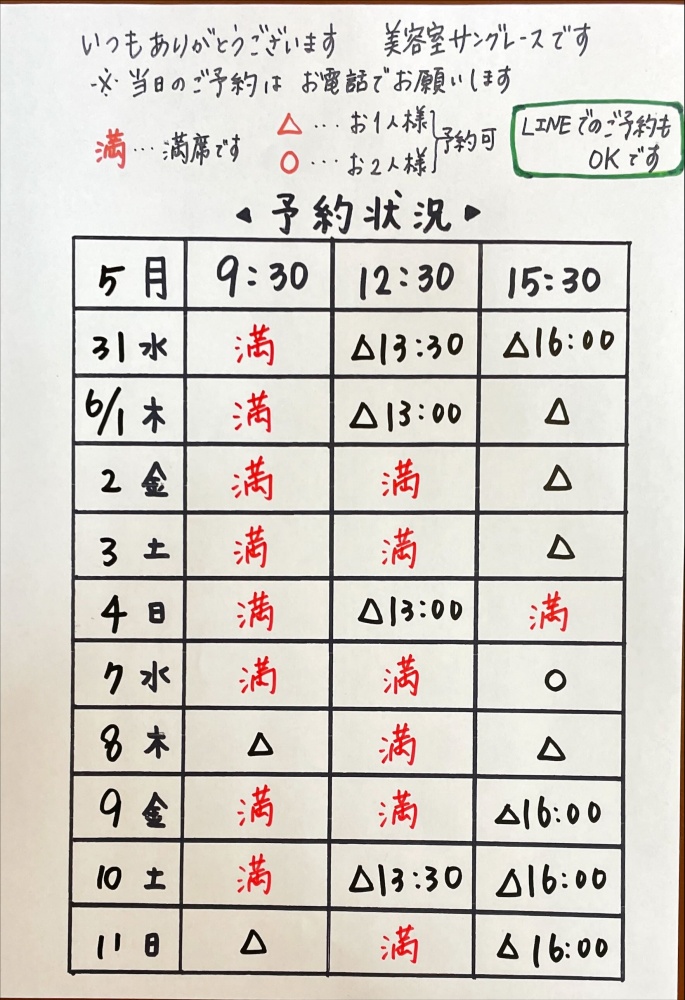 いつもありがとうございます　美容室サングレースです
※ 当日のご予約は お電話でお願いします
満…満席です
△…お1人様
○…お2人様
予約可
LINEでのご予約も
OKです
◀ 予約状況 ▶
5月 9:30 12:30 15:30
31 水 満 △13:30 △16:00
6/1 木 満 △13:00 △
2 金 満 満 △
3 土 満 満 △
4 日 満 △13:00 満
7 水 満 満 ○
8 木 △ 満 △
9 金 満 満 △16:00
10 土 満 △13:30 △16:00
11 日 △ 満 △16:00